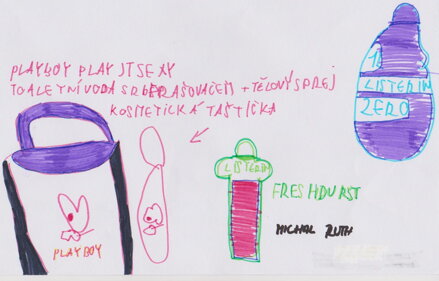 PLAYBOY PLAY IT SEXY
TOALETNÍ VODA S ROZPRAŠOVAČEM + TĚLOVÝ SPREJ
KOSMETICKÁ TAŠTIČKA
1
LISTERIN
ZERO
LISTERIN
FRESHDURST
MICHAL RUTH
PLAYBOY